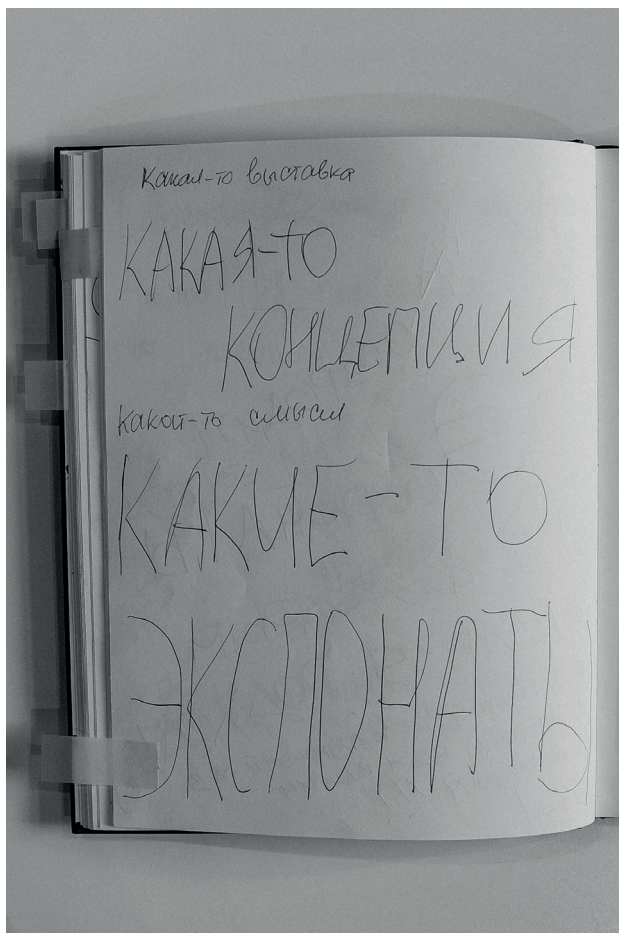 Какая-то выставка
КАКАЯ-ТО
КОНЦЕПЦИЯ
Какой-то смысл
КАКИЕ-ТО
ЭКСПОНАТЫ